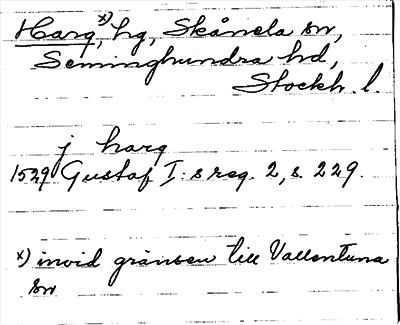 Harg, x) hg, Skånela sn,
Seminghundra hd,
Stockh. l.
j harg
1529 Gustaf I:s reg. 2, s. 229.
x) invid gränsen till Vallentuna
sn